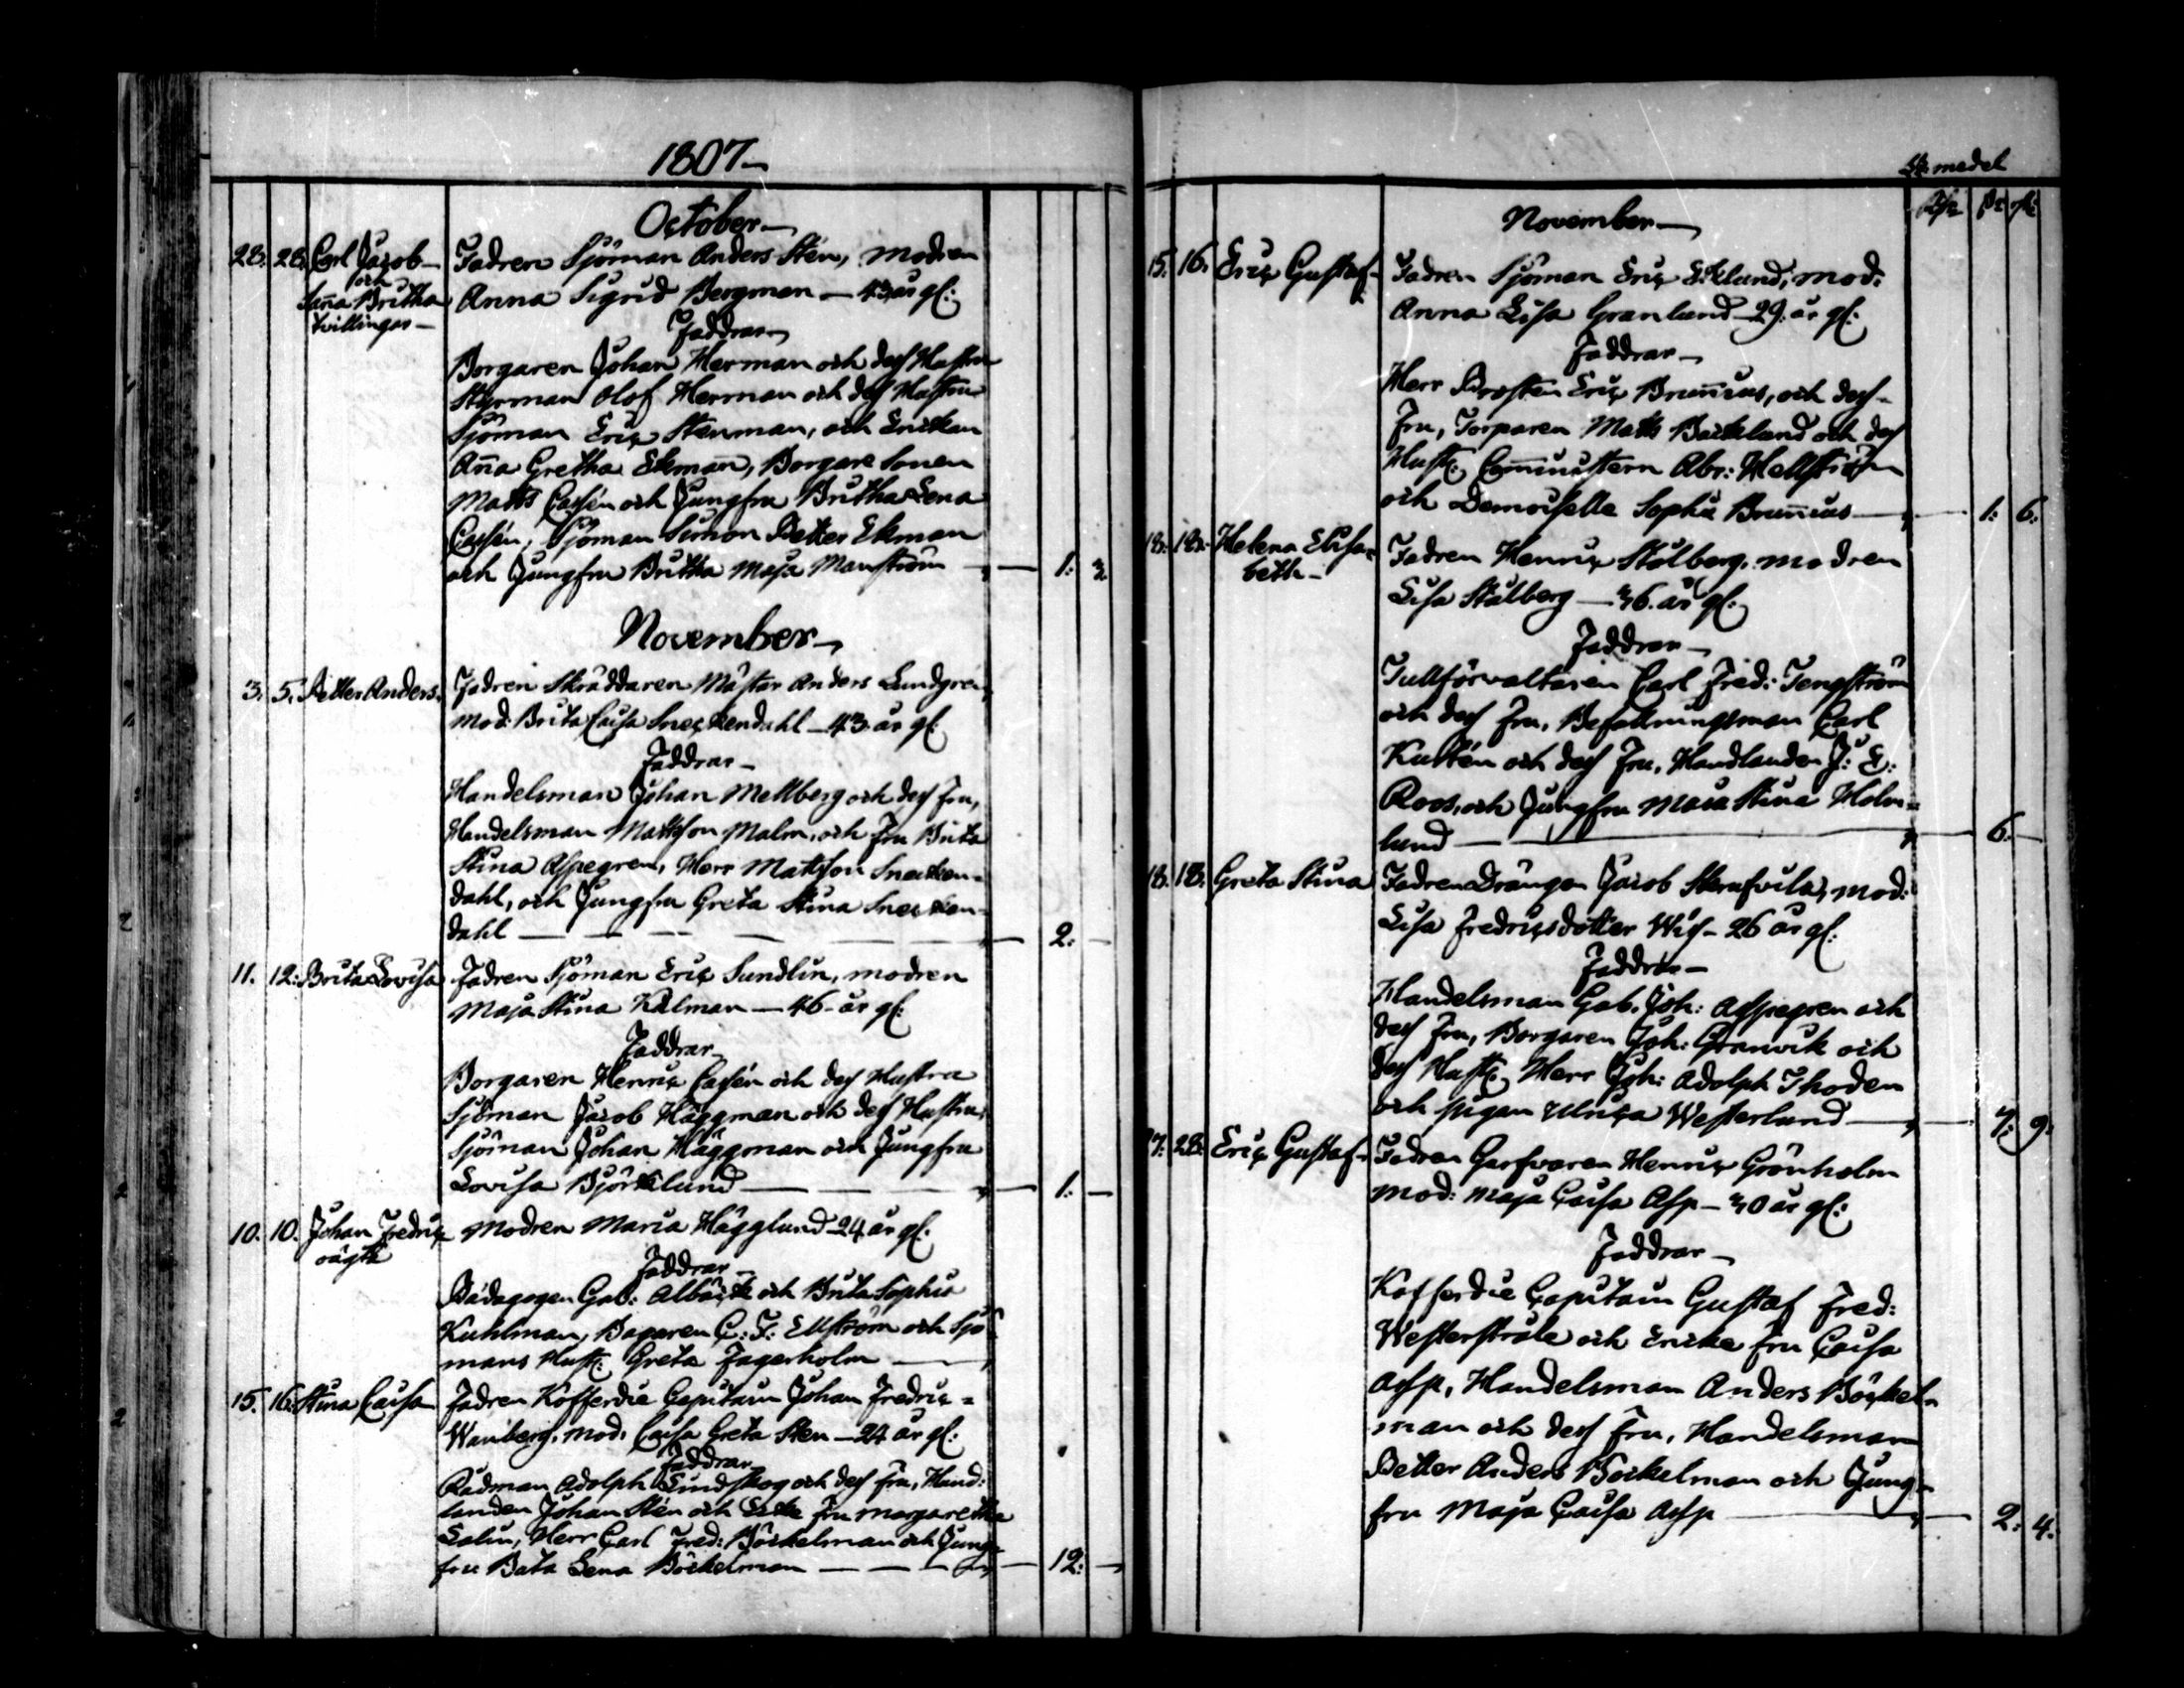 1807
October
28. 28. Carl Jacob Fadren Sjöman Anders Sten, modren
och
Sanna Britha Anna Sigrid Bergman — 43 år gl:
tvillingar
Faddrar
Borgaren Johan Herman och dess Hustru
Styrman Olof Herman och dess Hustru
Sjöman Eric Stenman, och Enckan
Aña Gretha Ekmañ, Borgare Sonen
Matts Cassén och Jungfru Britha Lena
Cassén, Sjöman Simon Petter Ekman
och Jungfru Britha Maja Manström — 1: 3.
November
3. 5. Petter Anders. Fadren Skräddaren Mästar Anders Lundgren,
mod: Brita Caisa Sneckendahl — 43 år gl:
Faddrar
Handelsman Johan Mellberg och dess Fru,
Handelsman Mattson Malm, och Fru Brita
Stina Aspegren, Herr Mattson Snecken-
dahl, och Jungfru Greta Stina Snecken-
dahl — 2: —
11. 12: Brita Lovisa Fadren Sjöman Eric Sundlin, modren
Maja Stina Kålman — 46 år gl:
Faddrar
Borgaren Henric Cassén och dess Hustru
Sjöman Jacob Häggman och dess Hustru,
Sjöman Johan Häggman och Jungfru
Lovisa Björklund — 1: —
10. 10. Johan Fredric Modren Maria Hägglund 24 år gl.
oägta
Faddrar
Pädagogen Gab: Albäck och Brita Sophia
Kuhlman, Bagaren C: F: Ellström och Sjö
mans Hust: Greta Fagerholm —
15. 16: Stina Caisa Fadren Kofferdie Capitain Johan Fredric
Wänberg, mod. Caisa Greta Sten — 24 år gl:
Faddrar
Rådman Adolph Lindskog och dess Fru, Hand:
landen Johan Stén och Encke Fru Margaretha
Salin, Herr Carl Fred: Böckelman och Jung-
fru Beata Lena Böckelman — 12: —
St: medel
November
15. 16. Eric Gustaf Fadren Sjöman Eric Ecklund, mod:
Anna Lisa Granlund 29. år gl:
Faddrar
Herr Prosten Eric Bruñius, och dess
Fru, Torparen Matts Backlund och dess
Hust: Coministern Abr: Hellström
och Demoiselle Sophie Bruñius — 1: 6:
18. 18. Helena Elisa- Fadren Henric Stålberg, modren
beth
Lisa Stålberg — 36. år gl:
Faddrar
Tullförvaltaren Carl Fred: Tengström
och dess Fru, Befallningsman Carl
Kutén och dess Fru, Handlanden J: E:
Roos, och Jungfru Maja Stina Holm-
lund — 6: —
18. 18. Greta Stina Fadren Drängen Jacob Skrufvila, mod:
Lisa Fredricsdotter Wiss — 26 år gl:
Faddrar
Handelsman Gab. Joh: Asspegren och
dess Fru, Borgaren Joh: Granvik och
dess Hust: Herr Joh: Adolph Thoden
och pigan Ulrica Westerlund — 3: 9:
7: 28: Eric Gustaf Fadren Garfvaren Henric Grönholm
mod: Maja Caisa Asp — 30 år gl:
Faddrar
Kofferdie Capitain Gustaf Fred:
Westerstråle och Encke Fru Caisa
Assp, Handelsman Anders Böckel-
man och dess Fru, Handelsman
Petter Anders Böckelman och Jung-
fru Maja Caisa Assp — 2: 4: